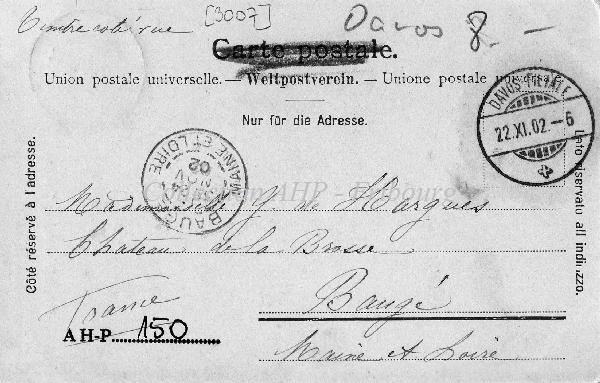 Timbre coté vue [3007] Davos 8.-
Carte postale.
Union postale universelle. — Weltpostverein. — Unione postale universale
Nur für die Adresse.
Côté réservé à l'adresse.
Lato riservato all'indirizzo.
DAVOS-PLATZ FILIALE
22.XI.02.-6
BAUGÉ
MAINE ET LOIRE
02
Collection AHP - Fribourg
Mademoiselle Y de Hargues
Chateau de la Brosse
Baugé
France
Maine et Loire
AH-P 150